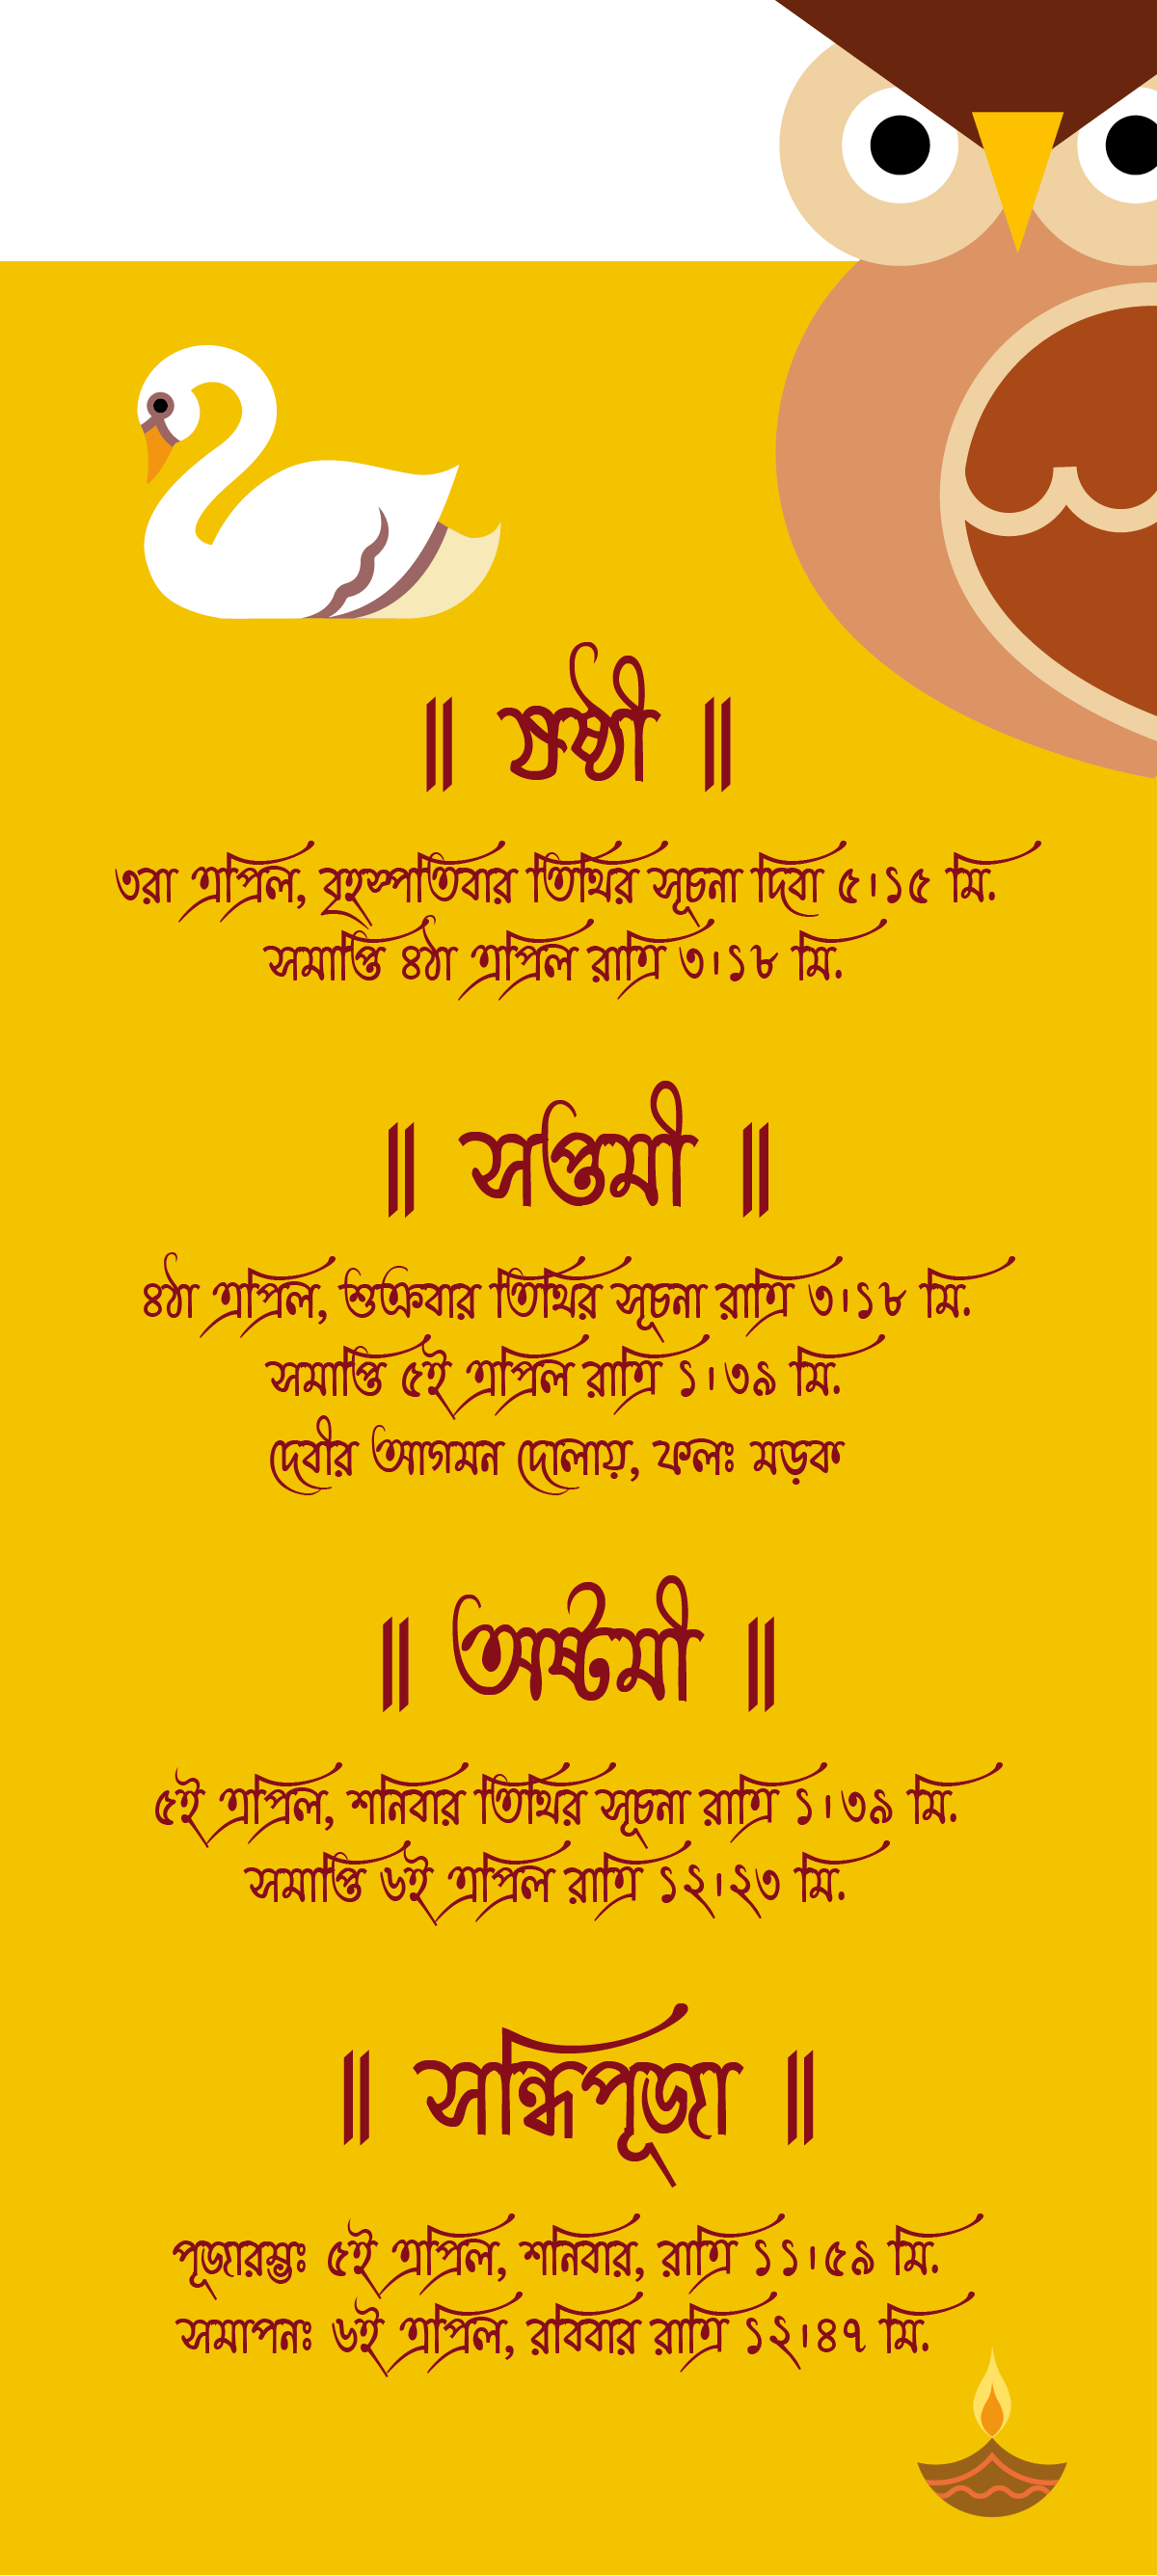 ॥ ষষ্ঠী ॥
৩রা এপ্রিল, বৃহস্পতিবার তিথির সূচনা দিবা ৫।১৫ মি.
সমাপ্তি ৪ঠা এপ্রিল রাত্রি ৩।১৮ মি.
॥ সপ্তমী ॥
৪ঠা এপ্রিল, শুক্রবার তিথির সূচনা রাত্রি ৩।১৮ মি.
সমাপ্তি ৫ই এপ্রিল রাত্রি ১।৩৯ মি.
দেবীর আগমন দোলায়, ফলঃ মড়ক
॥ অষ্টমী ॥
৫ই এপ্রিল, শনিবার তিথির সূচনা রাত্রি ১।৩৯ মি.
সমাপ্তি ৬ই এপ্রিল রাত্রি ১২।২৩ মি.
॥ সন্ধিপূজা ॥
পূজারম্ভঃ ৫ই এপ্রিল, শনিবার, রাত্রি ১১।৫৯ মি.
সমাপনঃ ৬ই এপ্রিল, রবিবার রাত্রি ১২।৪৭ মি.